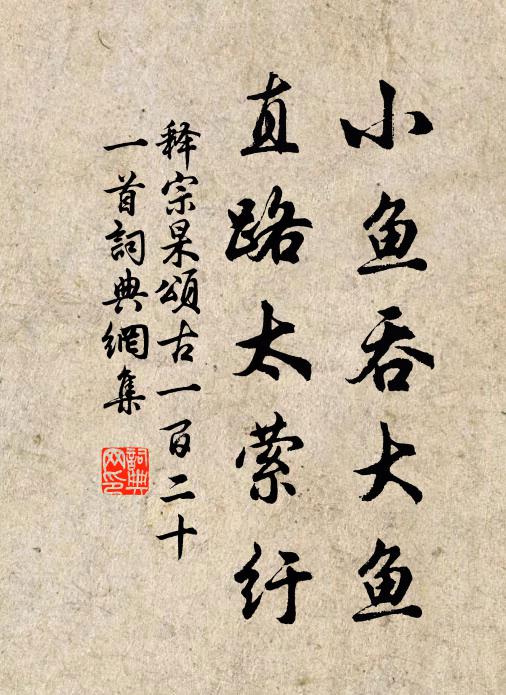 小鱼吞大鱼
直路太萦纡
释宗杲頌古一百二十
一首詞典網集
詞典
网印